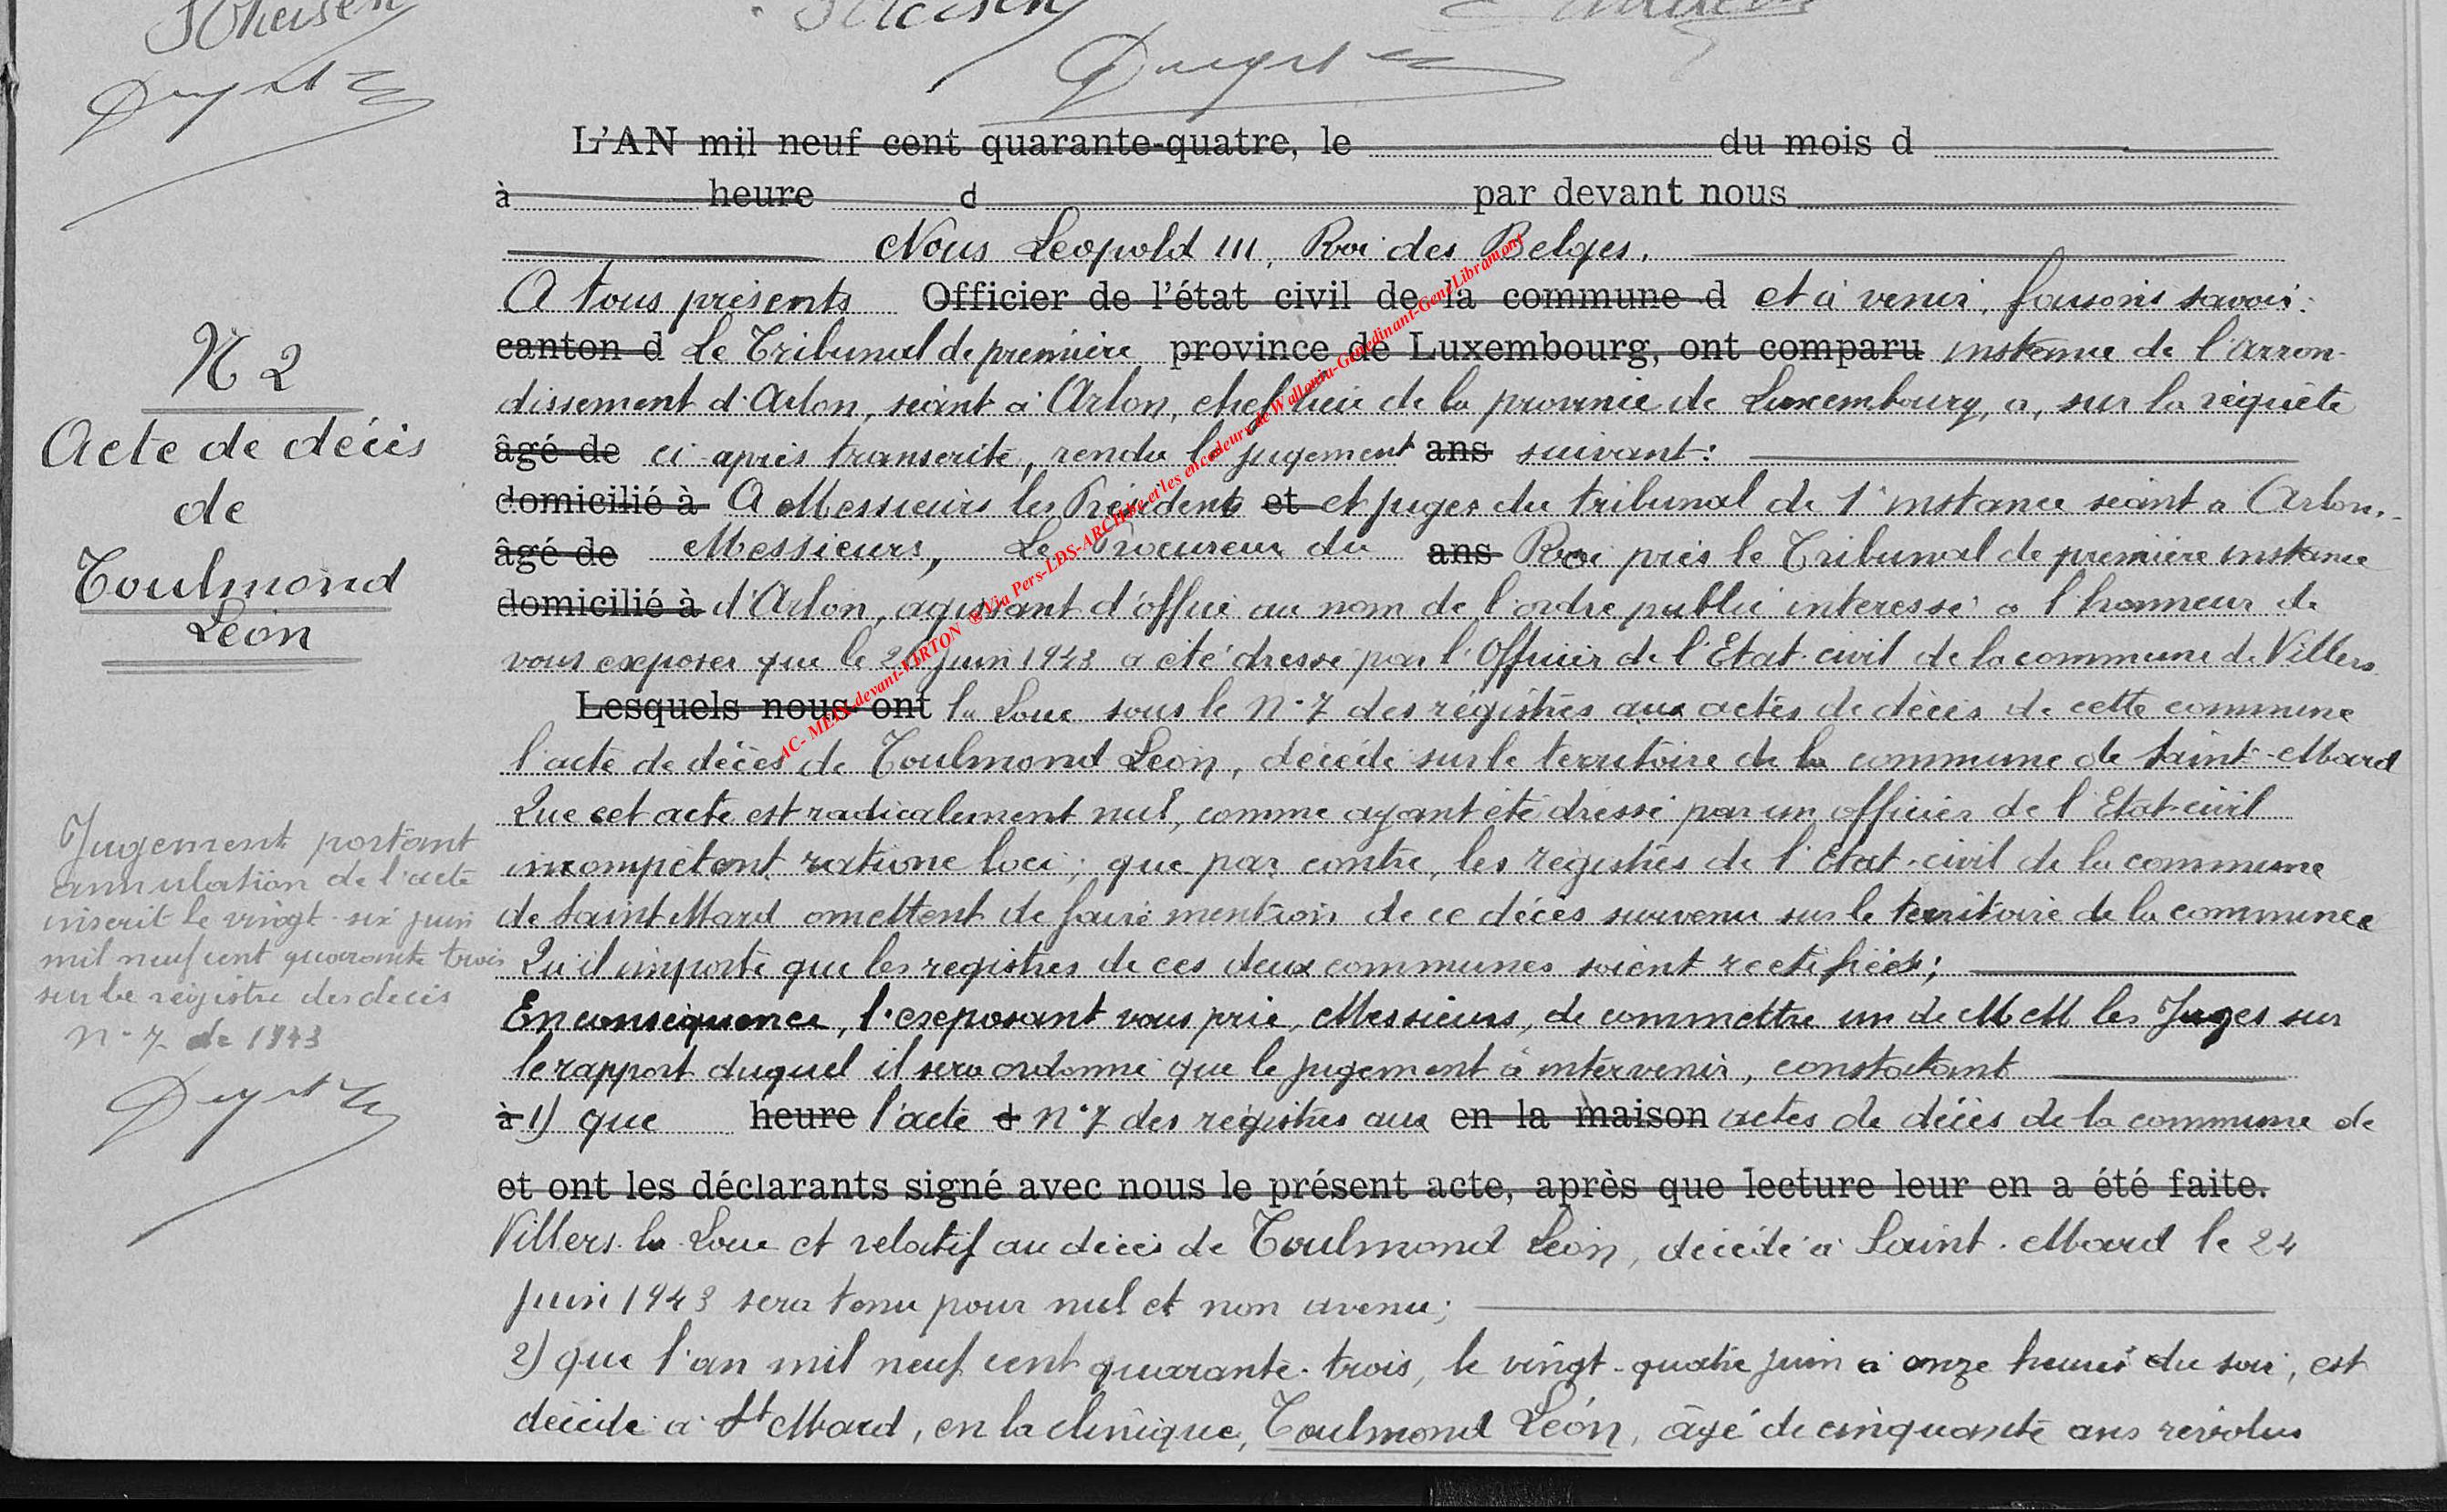 L'AN mil neuf cent quarante-quatre, le du mois d
à heure d par devant nous
Nous Leopold III, Roi des Belges.
A tous présents Officier de l'état civil de la commune d et à venir, faisons savoir:
canton d Le Tribunal de première province de Luxembourg, ont comparu instance de l'arron-
dissement d'Arlon, séant à Arlon, chef lieu de la province de Luxembourg, a, sur la requête
âgé de ci-après transcrite, rendu le jugement ans suivant:
domicilié à A Messieurs les Présidents et et juges du tribunal de 1e instance séant à Arlon.
âgé de Messieurs, Le Procureur du ans Roi près le Tribunal de première instance
domicilié à d'Arlon, agissant d'office au nom de l'ordre public intéressé a l'honneur de
vous exposer que le 26 juin 1943 a été dressé par l'Officier de l'Etat-civil de la commune de Villers
Lesquels nous ont la Loue sous le N°7 des registres aux actes de décès de cette commune
l'acte de décès de Toulmond Léon, décédé sur le territoire de la commune de Saint-Mard
Que cet acte est radicalement nul, comme ayant été dressé par un officier de l'Etat-civil
incompétent ratione loci; que par contre, les registres de l'Etat-civil de la commune
de Saint Mard omettent de faire mention de ce décès survenu sur le territoire de la commune
Qu'il importe que les registres de ces deux communes soient rectifiés;
En conséquence, l'exposant vous prie, Messieurs, de commettre un de MM les Juges sur
le rapport duquel il sera ordonné que le jugement à intervenir, constatant
à 1) que heure l'acte d N°7 des registres aux en la maison actes de décès de la commune de
et ont les déclarants signé avec nous le présent acte, après que lecture leur en a été faite.
Villers-la-Loue et relatif au décès de Toulmond Léon, décédé à Saint-Mard le 24
juin 1943 sera tenu pour nul et non avenu;
2) que l'an mil neuf cent quarante-trois, le vingt-quatre juin à onze heures du soir, est
décédé à St Mard, en la clinique, Toulmond Léon, âgé de cinquante ans révolus
N 2
Acte de décès
de
Toulmond
Léon
Jugement portant
annulation de l'acte
inscrit le vingt-six juin
mil neuf cent quarante trois
sur le registre des décès
N°7 de 1943
AC- MEIX-devant-VIRTON @Via Pers-LDS-ARCH.be et les encodeurs de Wallonia-Genedinant-GeneLibramont